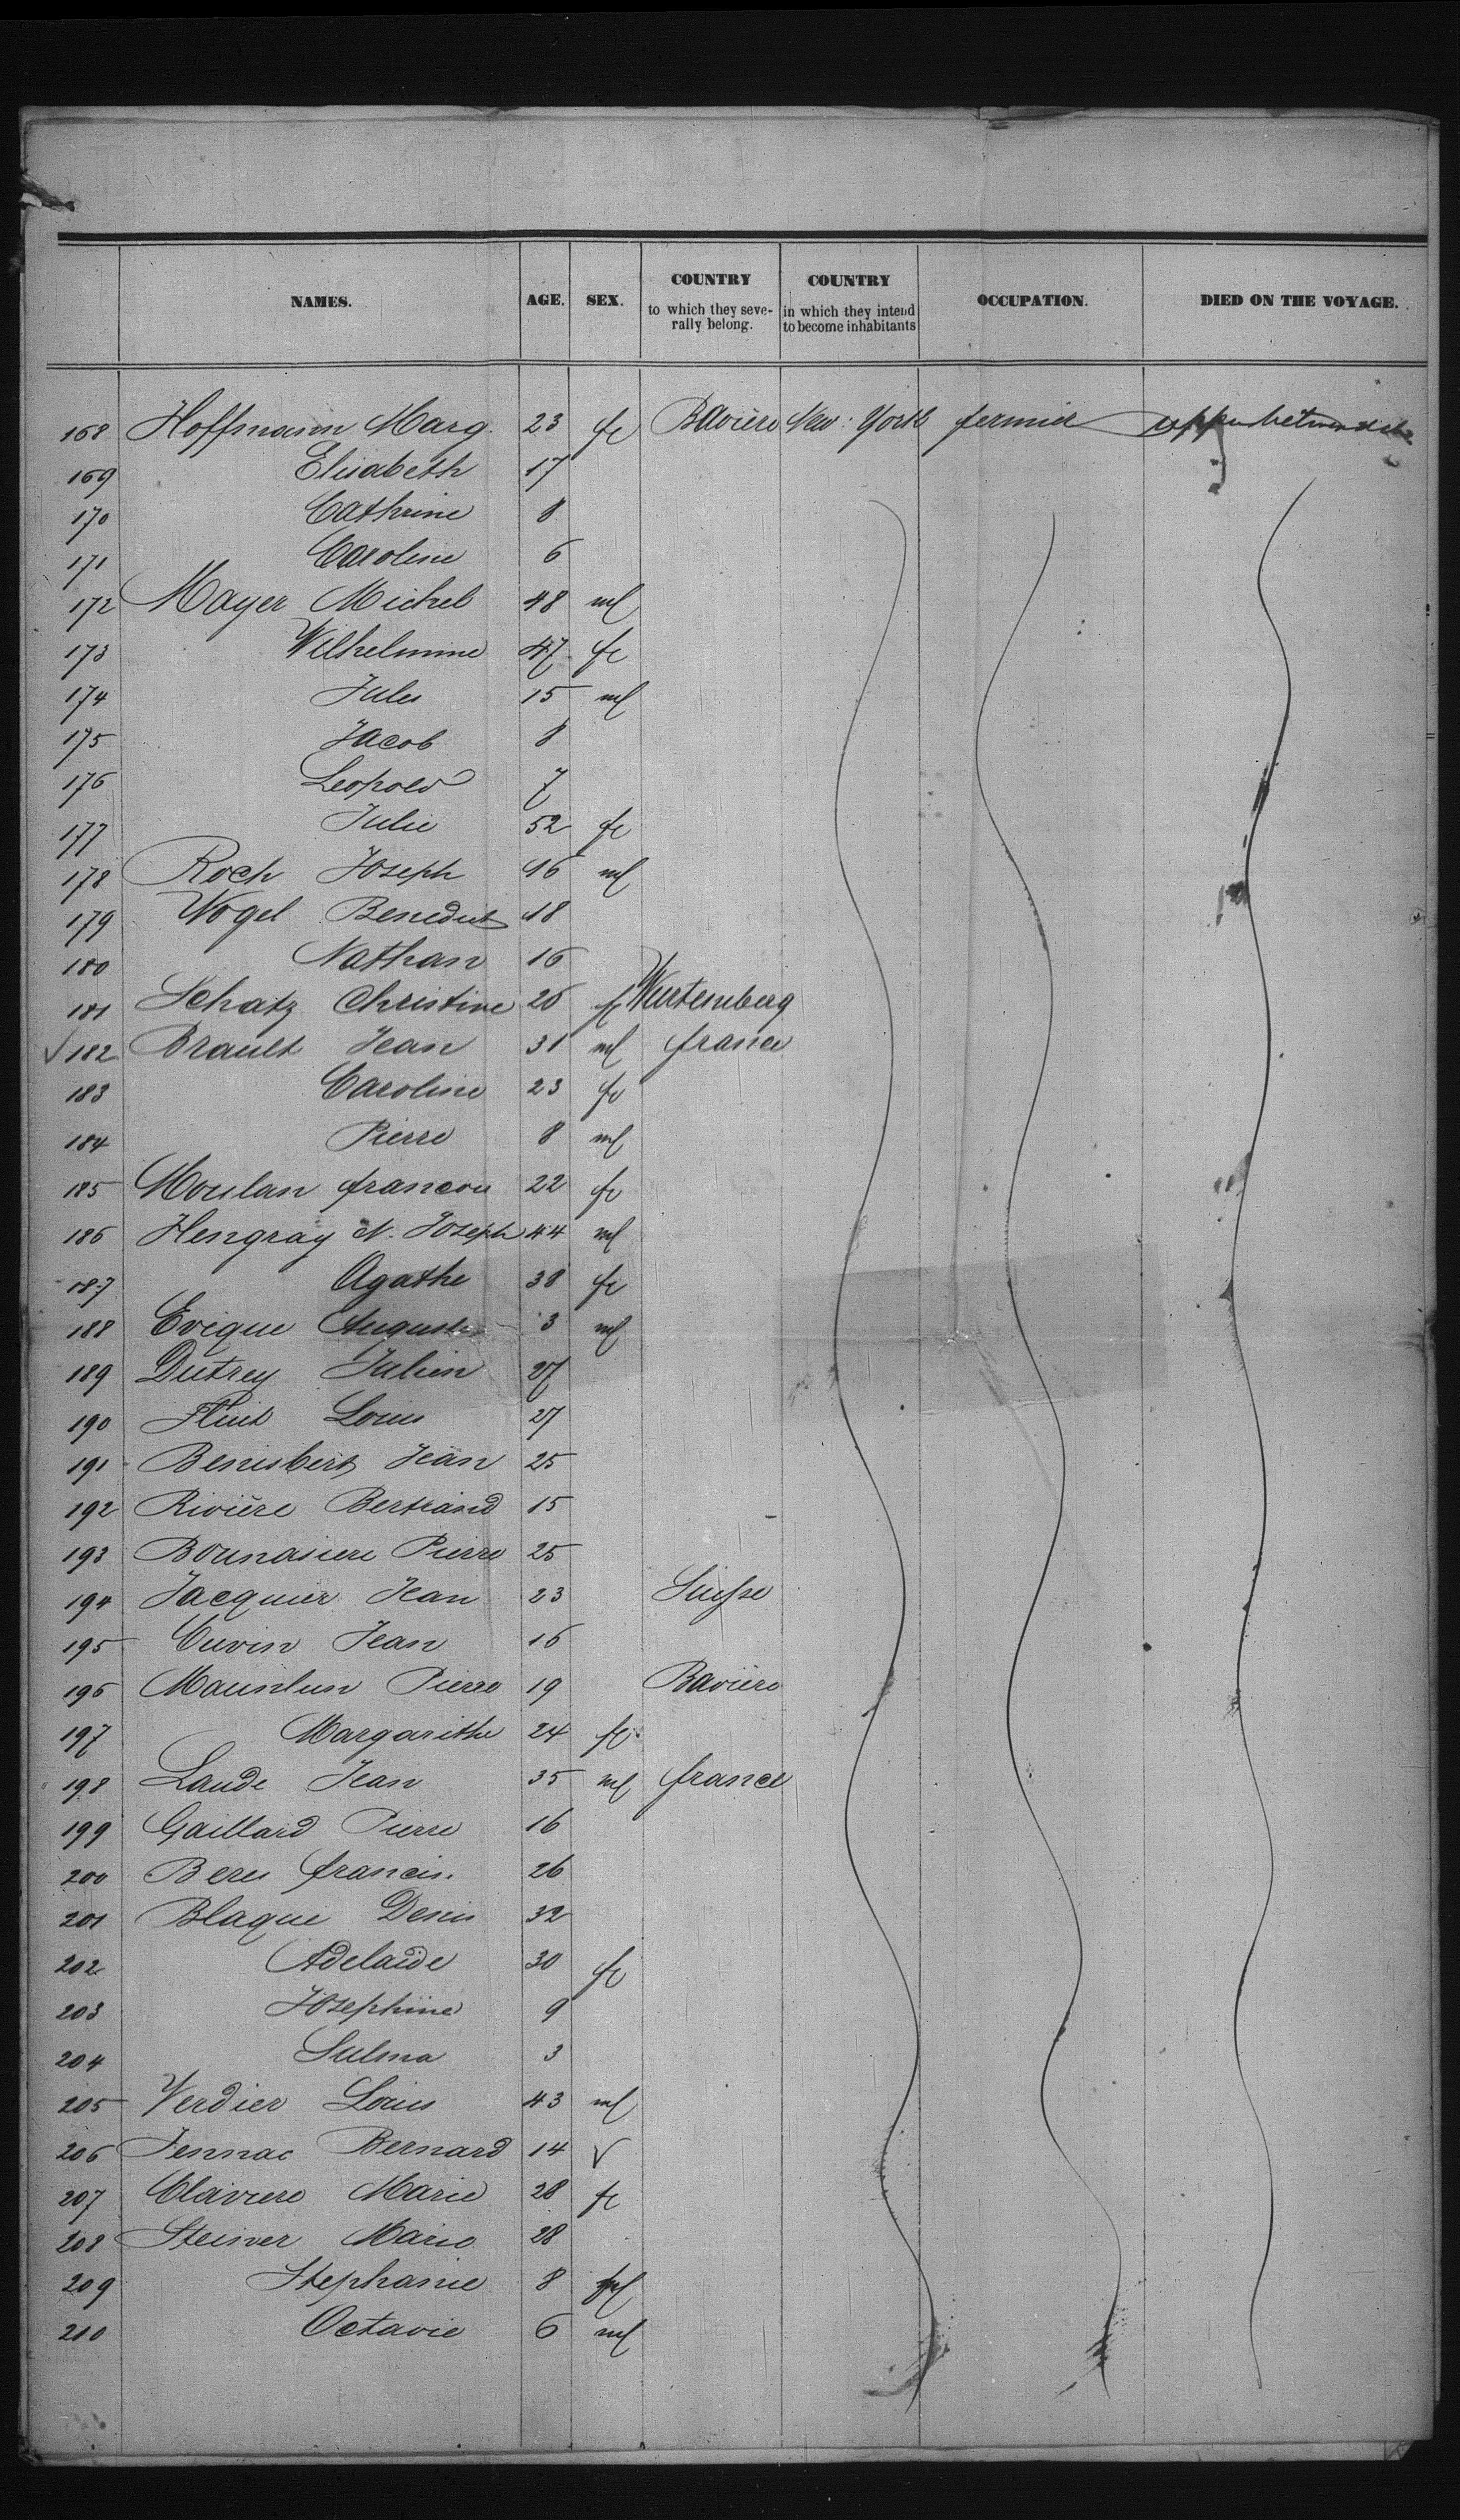 NAMES. AGE. SEX. COUNTRY to which they seve- rally belong. COUNTRY in which they intend to become inhabitants OCCUPATION. DIED ON THE VOYAGE.
168 Hoffmann Marg. 23 fe Bavière New-York fermier
169 Elisabeth 17
170 Cathrine 8
171 Caroline 6
172 Mayer Michel 48 ml
173 Wilhelmine 47 fe
174 Jules 15 ml
175 Jacob 8
176 Leopold 7
177 Julie 52 fe
178 Roch Joseph 16 ml
179 Vogel Benedict 18
180 Nathan 16
181 Schatz Christine 26 fe Wurtemberg
182 Brault Jean 31 ml france
183 Caroline 23 fe
184 Pierre 8 ml
185 Moulan francois 22 fe
186 Hengray N. Joseph 44 ml
187 Agathe 38 fe
188 Evique Auguste 3 ml
189 Dutrey Julien 27
190 Louis 27
191 Benisbert Jean 25
192 Rivière Bertrand 15
193 Bounasiere Pierre 25
194 Jacquier Jean 23 Suisse
195 Cuvin Jean 16
196 Pierre 19 Bavière
197 Margarithe 24 fe
198 Laude Jean 35 ml france
199 Gaillard Pierre 16
200 Beres francis. 26
201 Blaque Denis 32
202 Adelaide 30 fe
203 Josephine 9
204 Sulma 3
205 Verdier Louis 43 ml
206 Jennac Bernard 14 √
207 Claviere Marie 28 fe
208 Steiner Marie 28
209 Stephanie 8
210 Octavie 6 ml